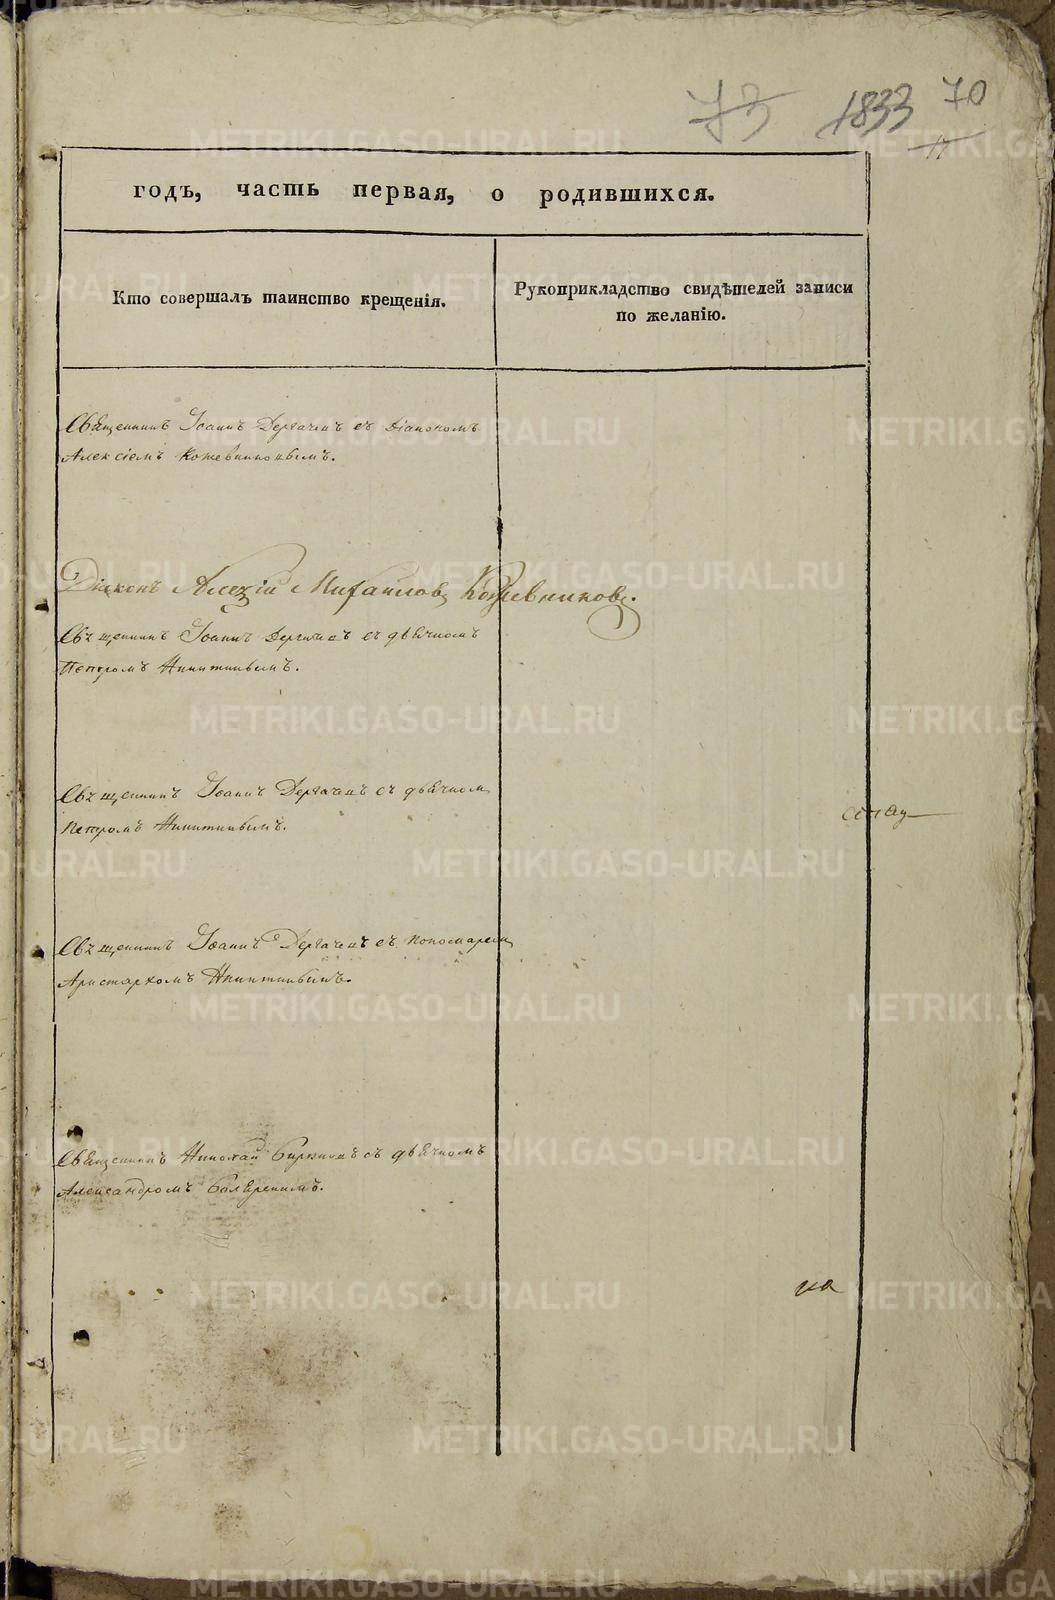 73 1833 70
11
годъ, часть первая, о родившихся.
Кто совершалъ таинство крещенія.
Рукоприкладство свидѣтелей записи
по желанію.
Священникъ Іоаннъ Дергачевъ съ Діакономъ
Алексіемъ Кожевниковымъ.
Діаконъ Алексій Михаиловъ Кожевниковъ.
Священникъ Іоаннъ Дергачевъ съ дьячкомъ
Петромъ Никитинымъ.
Священникъ Іоаннъ Дергачевъ съ дьячкомъ
Петромъ Никитинымъ.
Священникъ Іоаннъ Дергачевъ съ пономаремъ
Аристархомъ Никитинымъ.
Священникъ Николай Бирюковъ съ дьячкомъ
Александромъ
на
METRIKI.GASO-URAL.RU